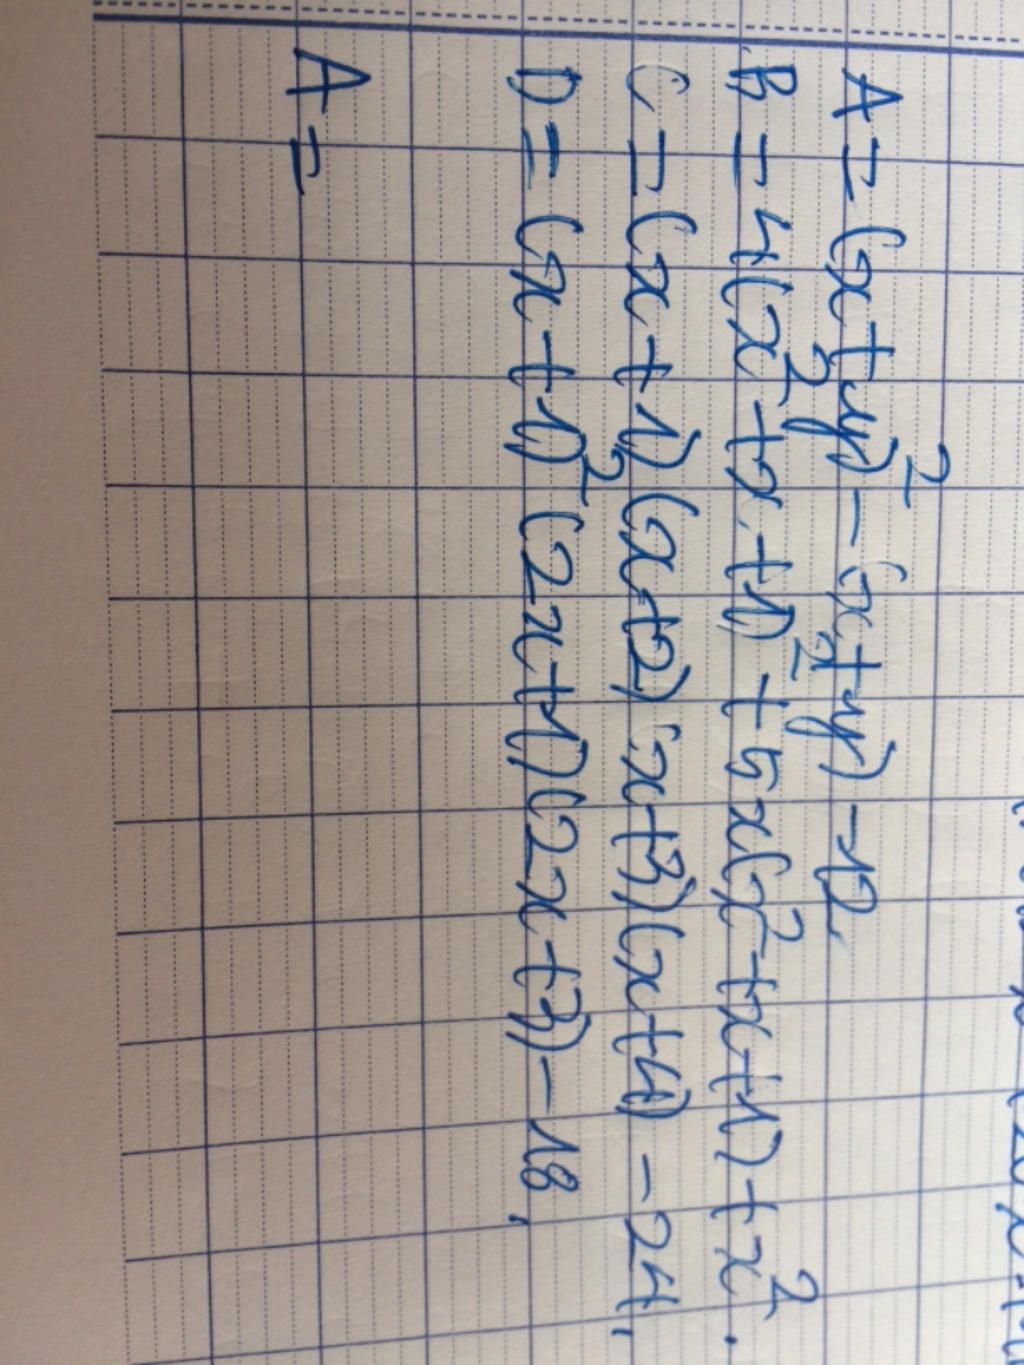 A = (x+y)² - (x+y) - 12.
B = 4(x² + x + 1)² + 5x(x² + x + 1) + x².
C = (x + 1)(x + 2)(x + 3)(x + 4) - 24,
D = (x + 1)² (2x + 1)(2x + 3) - 18,
A =